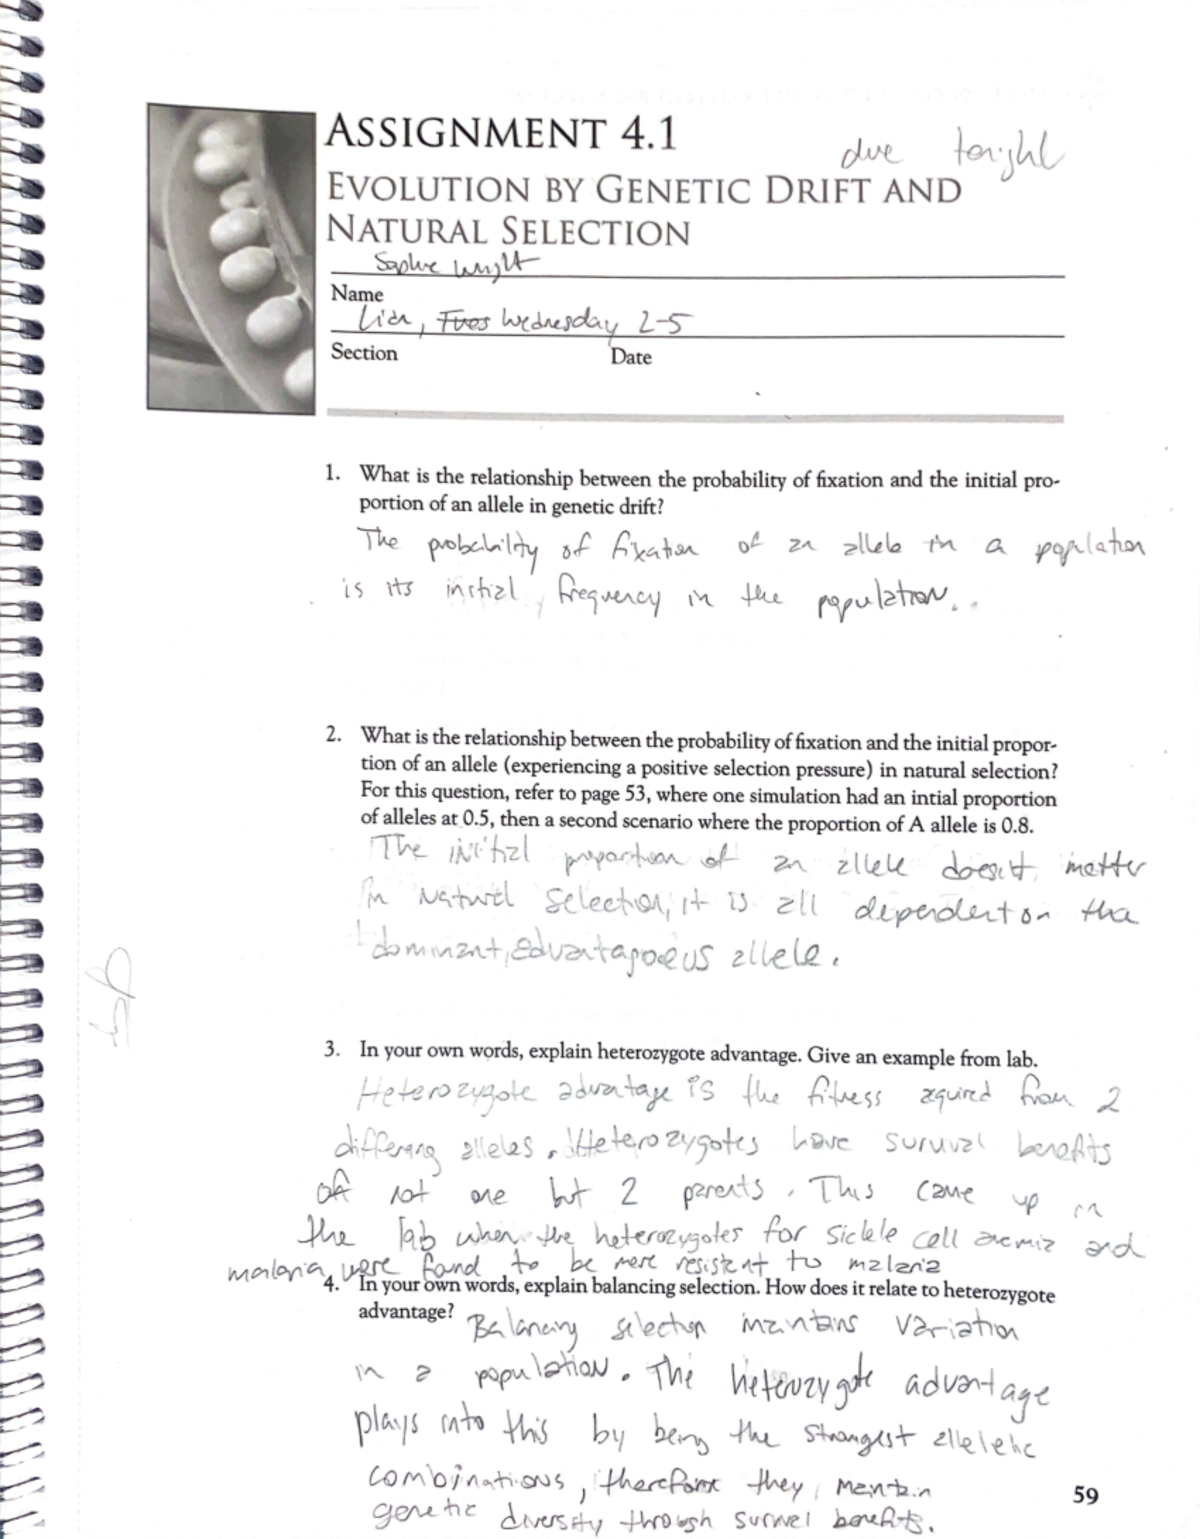 ASSIGNMENT 4.1
due tonight
EVOLUTION BY GENETIC DRIFT AND
NATURAL SELECTION
Sophie Wright
Name
Lian, Tues Wednesday 2-5
Section Date
1. What is the relationship between the probability of fixation and the initial pro-
portion of an allele in genetic drift?
The probability of fixation of an allele in a population
is its initial frequency in the population.
2. What is the relationship between the probability of fixation and the initial propor-
tion of an allele (experiencing a positive selection pressure) in natural selection?
For this question, refer to page 53, where one simulation had an intial proportion
of alleles at 0.5, then a second scenario where the proportion of A allele is 0.8.
The initial proportion of an allele doesn't matter
in natural selection, it is all dependent on the
dominant, advantageous allele.
3. In your own words, explain heterozygote advantage. Give an example from lab.
Heterozygote advantage is the fitness aquired from 2
differing alleles. Heterozygotes have survival benefits
of not one but 2 parents. This came up in
the lab when the heterozygotes for sickle cell anemia and
malaria were found to be more resistent to malaria
4. In your own words, explain balancing selection. How does it relate to heterozygote
advantage?
Balancing selection maintains variation
in a population. The heterozygote advantage
plays into this by being the strongest allelelic
combinations, therefore they maintain
genetic diversity through survival benefits.
59